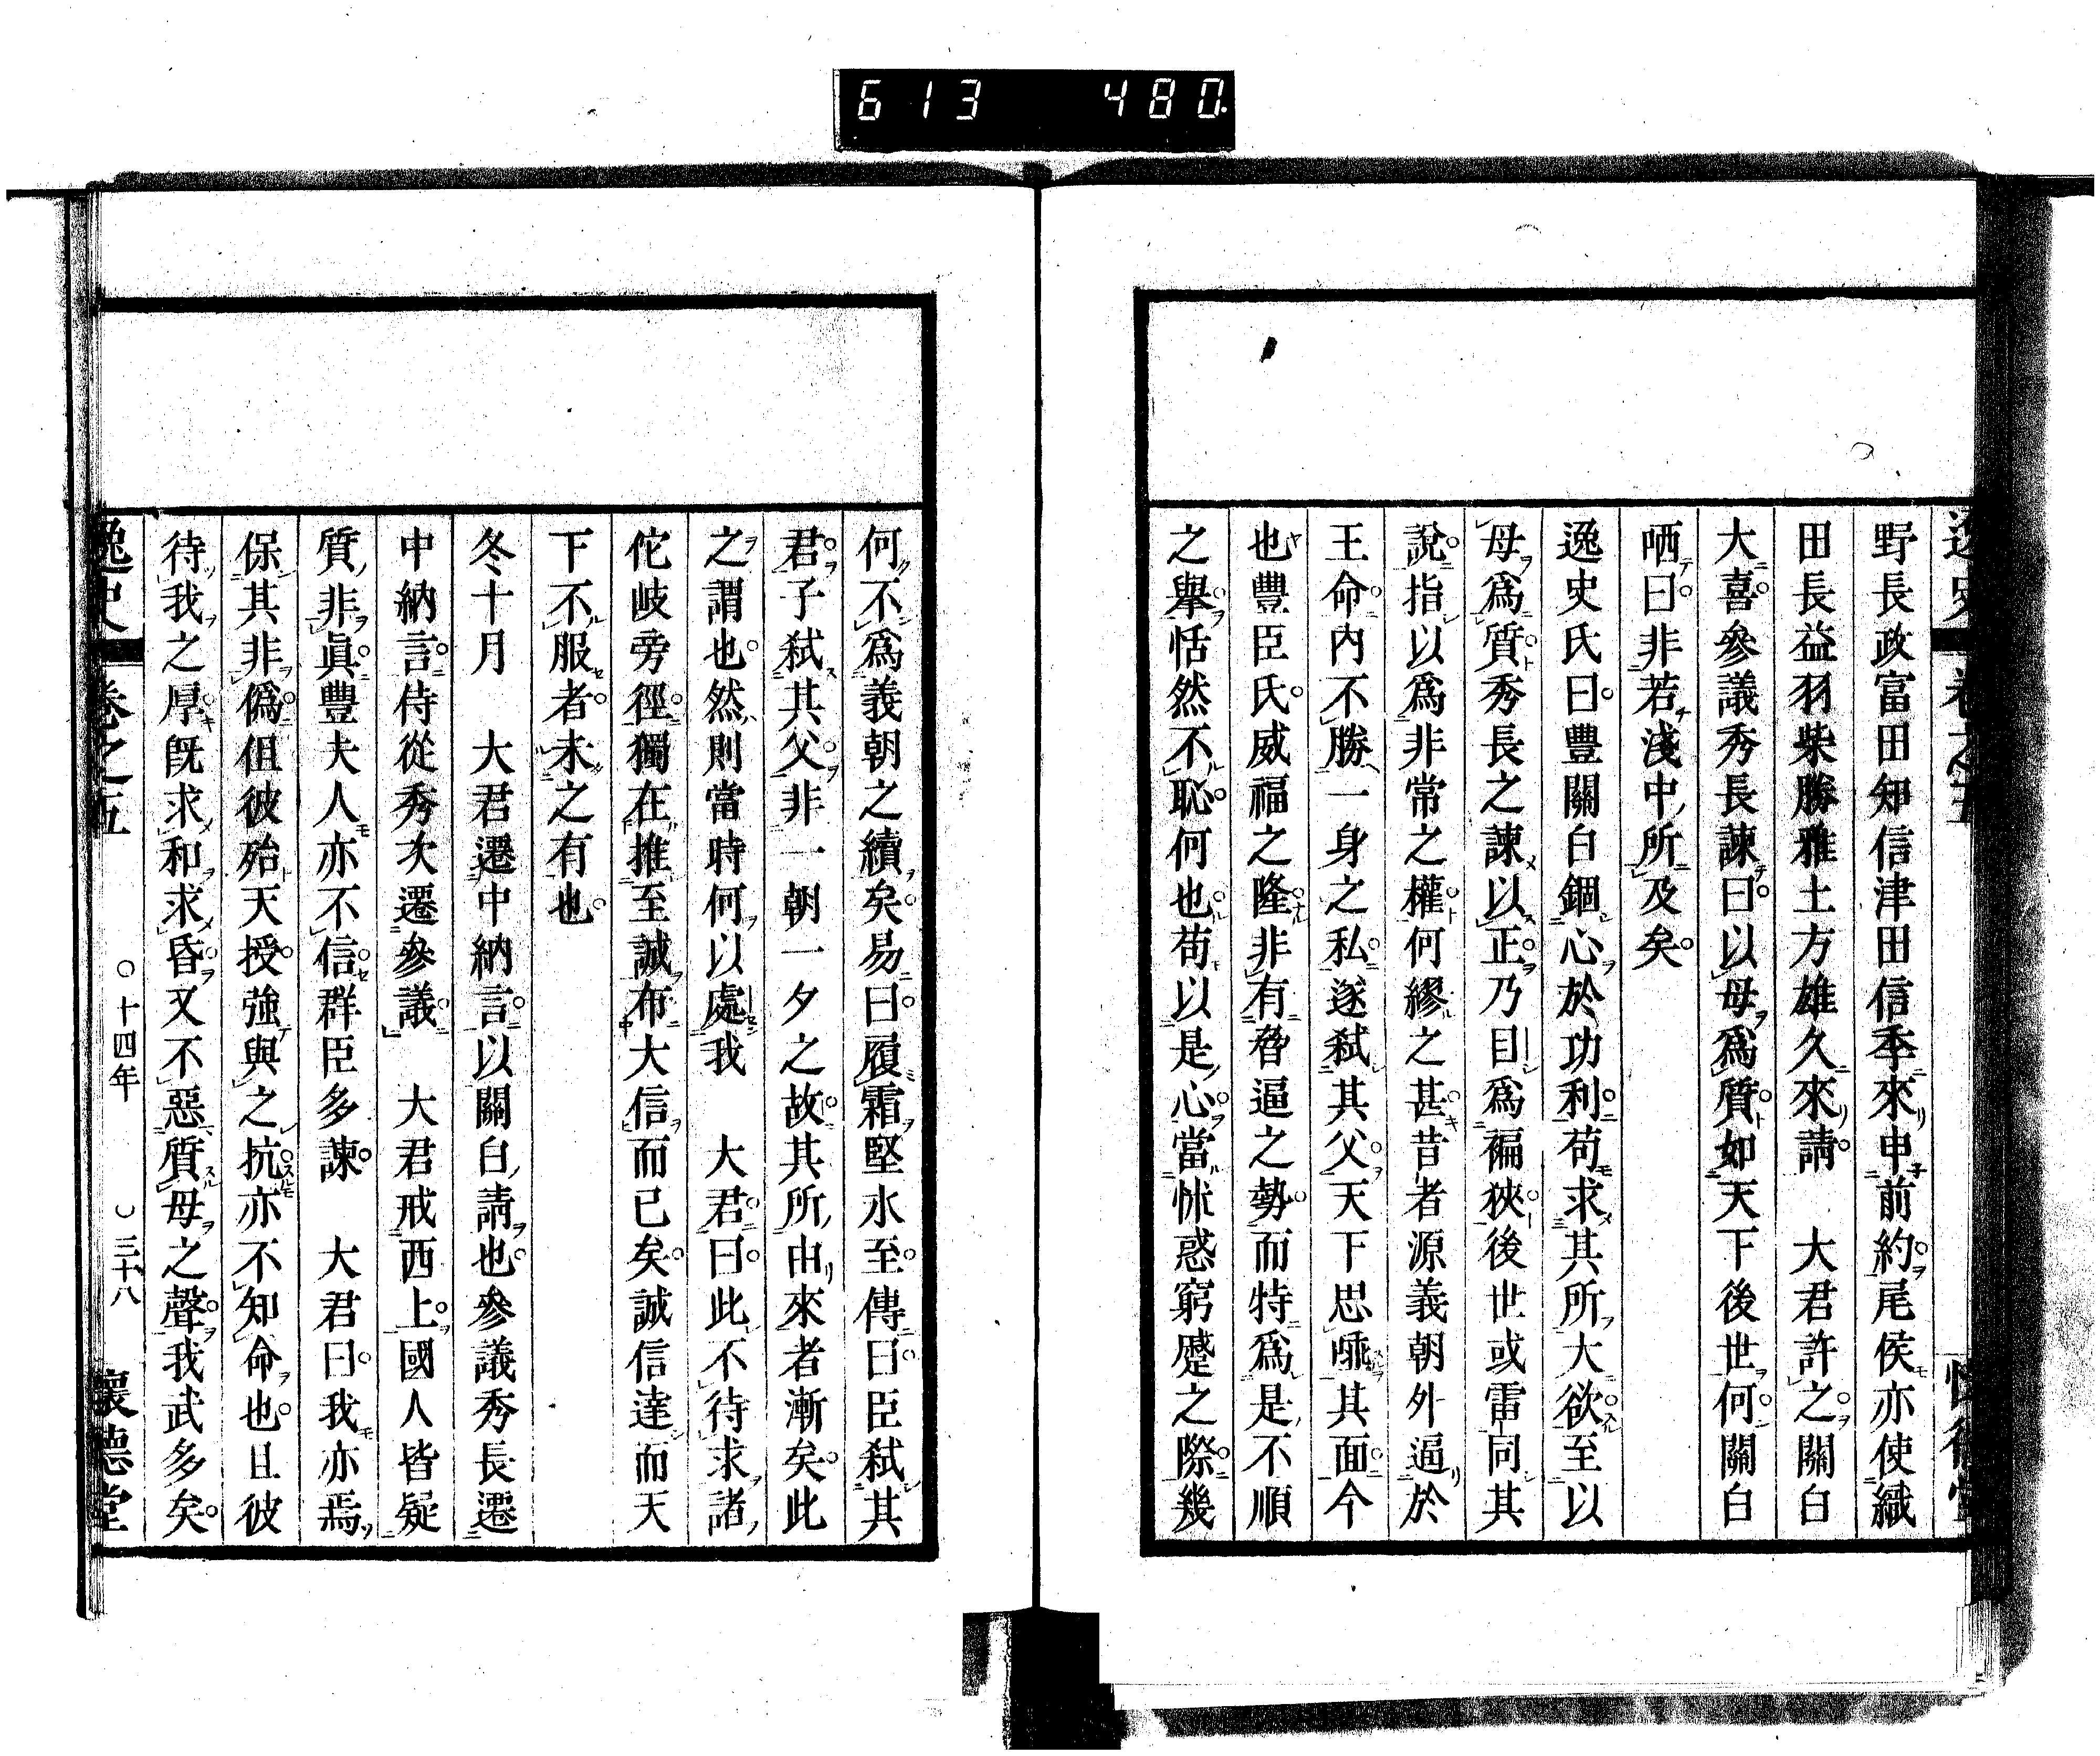 613 480
野長政富田知信津田信季來申前約尾侯亦使織
田長益羽柴勝雅土方雄久來請　大君許之關白
大喜參議秀長諫曰以母爲質如天下後世何關白
哂曰非若淺中所及矣
逸史氏曰豐關白錮心於功利苟求其所大欲至以
母爲質秀長之諫以正乃目爲褊狹後世或雷同其
說指以爲非常之權何繆之甚昔者源義朝外逼於
王命內不勝一身之私遂弒其父天下思唾其面今
也豐臣氏威福之隆非有脅逼之勢而特爲是不順
之擧恬然不恥何也苟以是心當怵惑窮蹙之際幾
何不爲義朝之續矣易曰履霜堅氷至傳曰臣弒其
君子弒其父非一朝一夕之故其所由來者漸矣此
之謂也然則當時何以處我　大君曰此不待求諸
佗岐旁徑獨在推至誠布大信而已矣誠信達而天
下不服者未之有也
冬十月　大君遷中納言以關白請也參議秀長遷
中納言侍從秀次遷參議　大君戒西上國人皆疑
質非眞豐夫人亦不信群臣多諫　大君曰我亦焉
保其非僞但彼殆天授強與之抗亦不知命也且彼
待我之厚旣求和求昏又不惡質母之聲我武多矣
逸史　卷之五　○十四年　○三十八　懷德堂